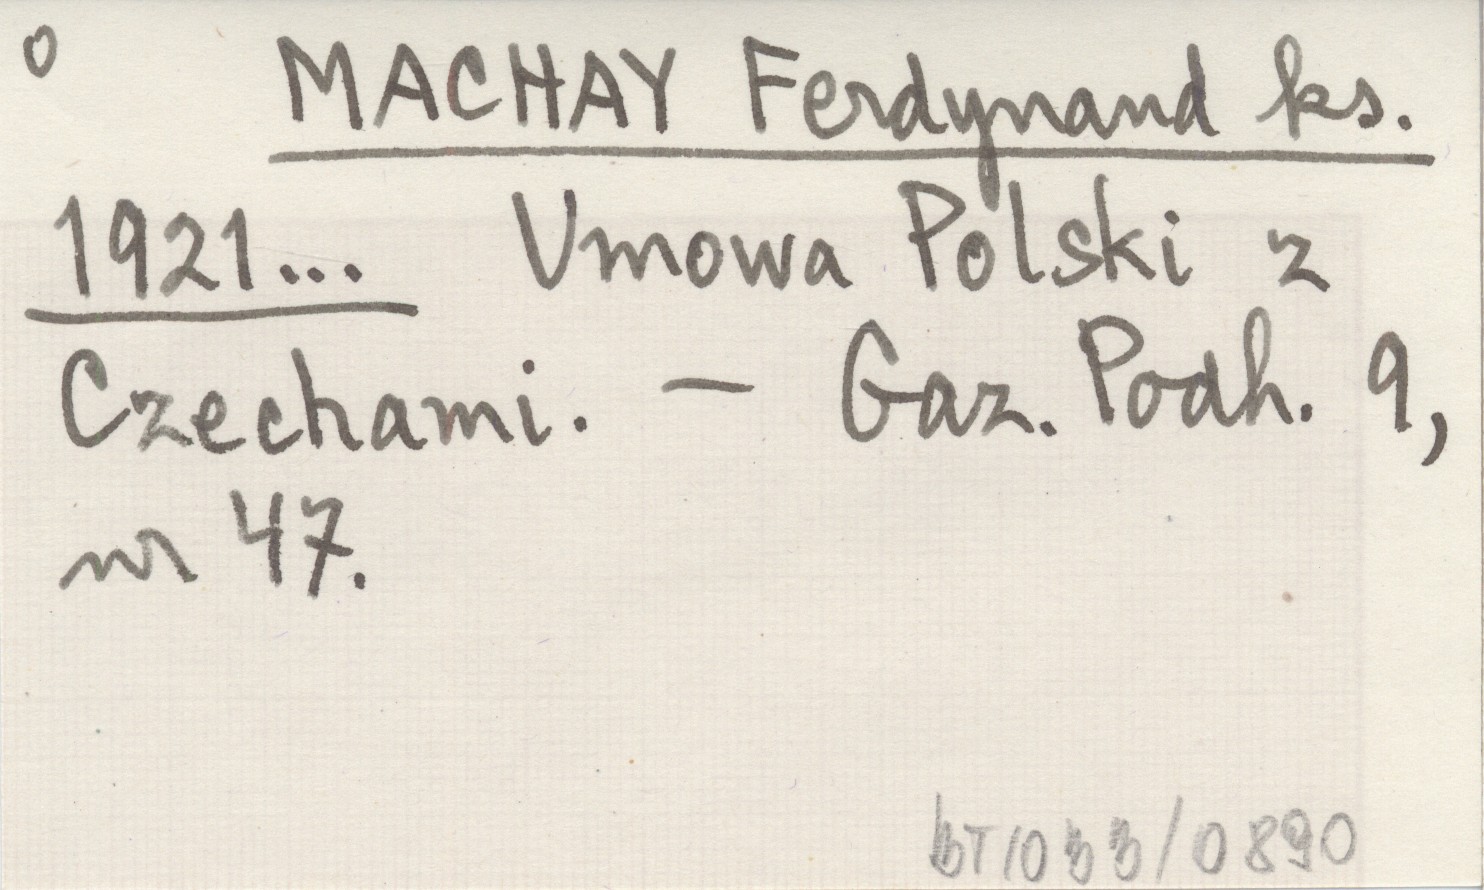 o MACHAY Ferdynand ks.
1921... Umowa Polski z
Czechami. — Gaz. Podh. 9,
nr 47.
bT/033/0890